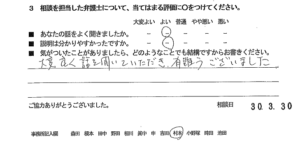 3 相談を担当した弁護士について、当てはまる評価に○をつけてください。
大変よい よい 普通 やや悪い 悪い
■ あなたの話をよく聞きましたか。
■ 説明は分かりやすかったですか。
■ 気がついたことがありましたら、どのようなことでも結構ですからお書きください。
大変良く話を聞いていただき、有難うございました
ご協力ありがとうございました。
相談日 30.3.30
事務局記入欄 森田 橋本 田中 野田 吉田 村本 小野塚 時田 池田